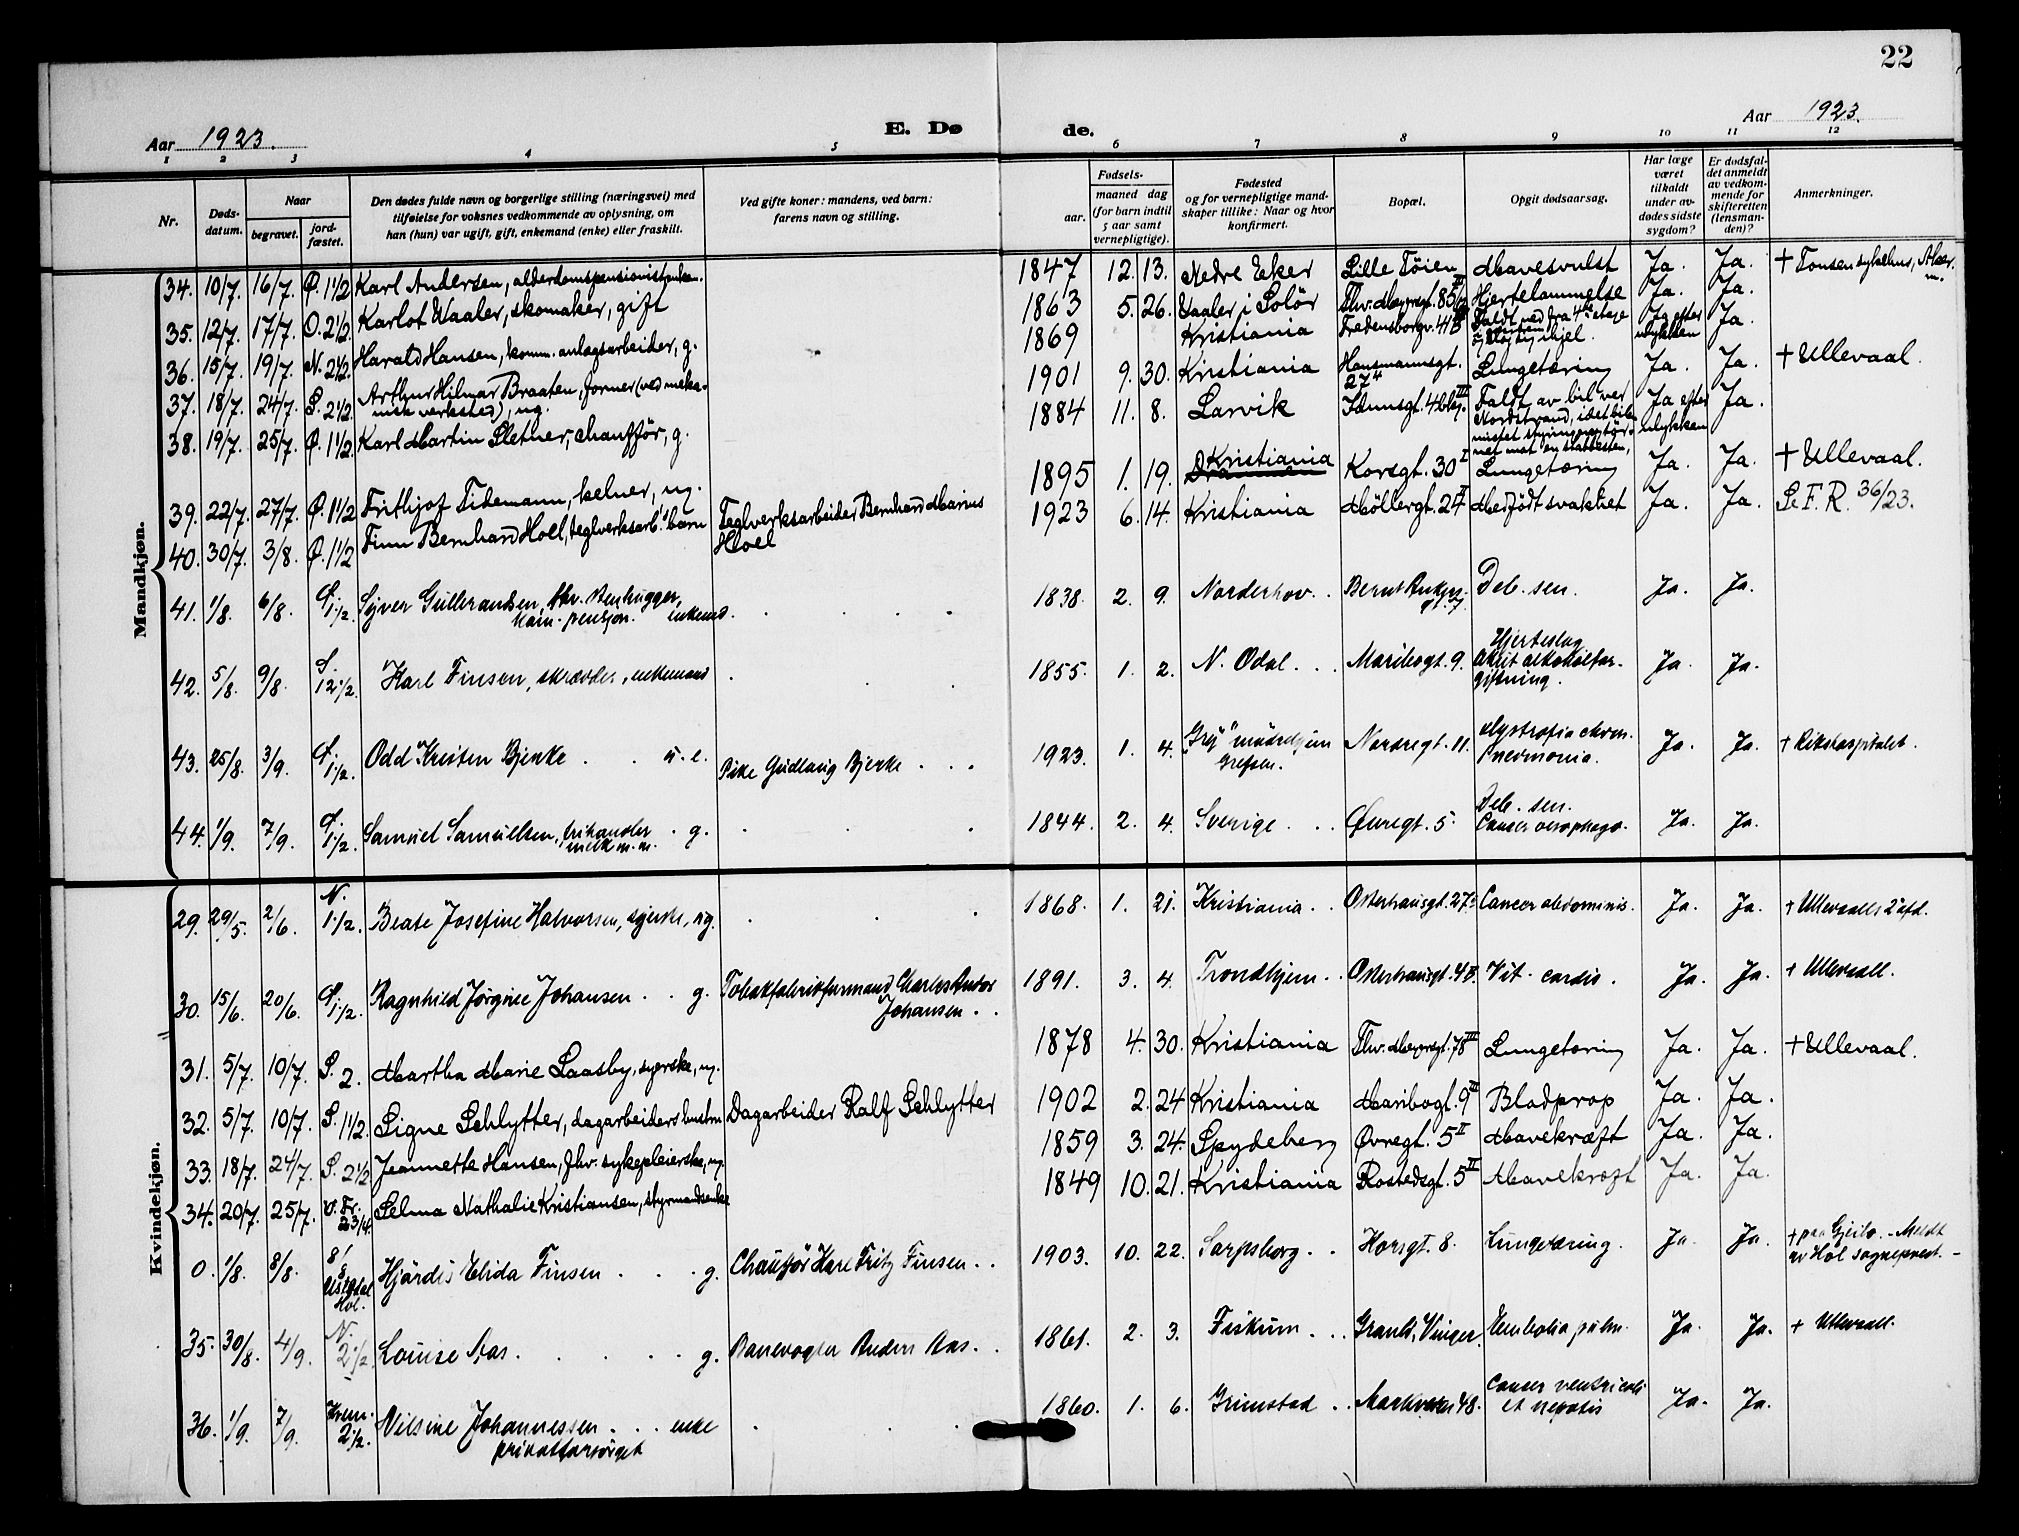 22
Aar 1923.
E. Dø
de.
Aar 1923.
1 2 3 4 5 6 7 8 9 10 11 12
Nr.
Døds-
datum.
Naar
begravet.
jord-
fæstet.
Den dødes fulde navn og borgerlige stilling (næringsvei) med
tilføielse for voksnes vedkommende av oplysning, om
han (hun) var ugift, gift, enkemand (enke) eller fraskilt.
Ved gifte koner: mandens, ved barn:
farens navn og stilling.
Fødsels-
aar.
maaned dag
(for barn indtil
5 aar samt
vernepligtige).
Fødested
og for vernepligtige mand-
skaper tillike: Naar og hvor
konfirmert.
Bopæl.
Opgit dødsaarsag.
Har læge
været
tilkaldt
under av-
dødes sidste
sygdom?
Er dødsfal-
det anmeldt
av vedkom-
mende for
skifteretten
(lensman-
den)?
Anmerkninger.
Mandkjøn.
34. 10/7. 16/7. Ø. 1 1/2 Karl Andersen, alderdomspensionist, enkem. 1847 12. 13. Nedre Eker Lille Töien Mavesvulst Ja. Ja. + Tonsen sykehus, Aker.
35. 12/7. 17/7. O. 2 1/2. Karlot Vaaler, skomaker, gift 1863 5. 26. Vaaler i Solör Thv. Meyersgt. 85 Hjertelammelse Ja. Ja.
36. 15/7. 19/7. N. 2 1/2. Harald Hansen, komm. anlægsarbeider, g. 1869 Kristiania Fredensborgv. 41 Faldt ned fra 4de etage
og slog sig ihjel. Ja efter
ulykken Ja.
37. 18/7. 24/7. S. 2 1/2. Arthur Hilmar Braaten, former (ved meka-
nisk verksted), ug. 1901 9. 30. Kristiania Hausmannsgt.
27 Lungetæring Ja. Ja. + Ullevaal.
38. 19/7. 25/7. Ø. 1 1/2 Karl Martin Sletner, chauffør, g. 1884 11. 8. Larvik Idunsgt. 4 Faldt av bil ved
Nordstrand, idet bilen
mistet styringen og tör-
net mot en stabbesten, Ja efter
ulykken Ja.
39. 22/7. 27/7. Ø. 1 1/2 Frithjof Tidemann, kelner, ug. 1895 1. 19. Kristiania Korsgt. 30 I Lungetæring Ja. Ja. + Ullevaal.
40. 30/7. 3/8. Ø. 1 1/2 Finn Bernhard Hoel, teglverksarb.' barn Teglverksarbeider Bernhard Marius
Hoel 1923 6. 14. Kristiania Möllergt. 24 Medfödt svakhet Ja. Ja. Se F. R. 36/23.
41. 1/8. 6/8. Ø. 1 1/2. Syver Gulbrandsen, fhv. stenhugger,
kom. pensjon. enkemd. 1838. 2. 9. Norderhov. Bernt Ankers Deb. sen. Ja. Ja.
42. 5/8. 9/8. S. 12 1/2. Karl Finsen, skrædder, enkemand 1855. 1. 2. N. Odal. Maribogt. 9. Hjerteslag
Akut alkoholfor-
giftning. Ja. Ja.
43. 25/8. 3/9. Ø. 1 1/2. Odd Kristen Bjerke . . u. e. Pike Gudlaug Bjerke . . . 1923. 1. 4. "Gry" mödrehjem
Grefsen. Nordregt. 11. Dystrofia chron.
Pneumonia. Ja. Ja. + Rikshospitalet.
44. 1/9. 7/9. Ø. 1 1/2. Samuel Samuelsen, frihandler
melk m.m. g. 1844. 2. 4. Sverige. Øvregt. 5. Deb. sen.
Cancer oesophago. Ja. Ja.
Kvindekjøn.
29. 29/5. 2/6. N. 1 1/2. Beate Josefine Halvorsen, syerske, ug. 1868. 1. 21. Kristiania. Osterhausgt. 27. Cancer abdominis. Ja. Ja. + Ullevaals 2' afd.
30. 15/6. 20/6. Ø. 1 1/2. Ragnhild Jørgine Johansen . . g. Tobakfabrikformand Charles
Johansen . . 1891. 3. 4. Trondhjem. Osterhausgt. 4 Vit. cordis. Ja. Ja. + Ullevaal.
31. 5/7. 10/7. S. 2. Martha Marie Laasby, syerske, ug. 1878 4. 30. Kristiania Thv. Meyersgt. 78 III Lungetæring Ja. Ja. + Ullevaal.
32. 5/7. 10/7. S. 1 1/2. Signe Schlytter, dagarbeiders hustru Dagarbeider Ralf Schlytter 1902 2. 24 Kristiania Maribogt. 9 II Blodprop Ja. Ja.
33. 18/7. 24/7. S. 2 1/2 Jeannette Hansen, fhv. sykepleierske, ug. 1859 3. 24. Spydeberg Øvregt. 5 II Mavekræft Ja. Ja.
34. 20/7. 25/7. V. Fr. 2 3/4. Selma Nathalie Kristiansen, styrmandsenke 1849 10. 21. Kristiania Rostedsgt. 5 II Mavekræft Ja. Ja.
0. 1/8. 8/8. 8/8
Ustedal
Hol. Hjördis Elida Finsen . . . g. Chauffør Karl Fritz Finsen . . 1903. 10. 22. Sarpsborg. Korsgt. 8. Lungetæring. Ja. Ja. + paa Gjeilo. - Meldt
av Hol sogneprest. -
35. 30/8. 4/9. N. 2 1/2. Louise Aas. . . . g. Banevogter Anders Aas. . 1861. 2. 3. Fiskum. Granli, Vinger. Embolia pulm. Ja. Ja. + Ullevaal.
36. 1/9. 7/9. Krem. 2 1/2. Nilsine Johannessen . . enke
privatforsørget 1860. 1. 6. Grimstad. Markveien 48. Cancer ventriculi
et hepatis Ja. Ja.